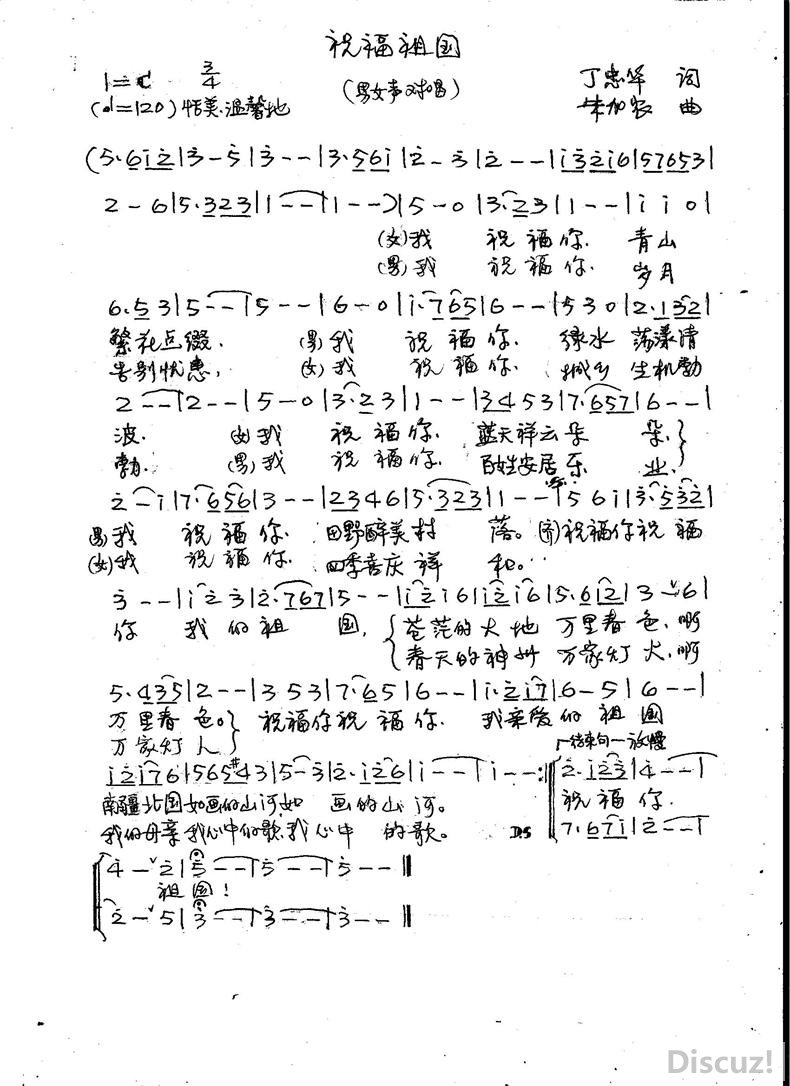 祝福祖国
1=C 3/4
(男女声对唱)
丁忠华 词
(♩=120) 恬美.温馨地
朱加农 曲
(5·6i2|3-5|3--|3·56i|2-3|2--|i32i6|57653|
2-6|5·323|1--|1--)|5-0|3·23|1--|i i 0|
(女)我 祝福你. 青山
(男)我 祝福你. 岁月
6·53|5--|5--|6-0|i·765|6--|530|2·132|
繁花点缀. (男)我 祝福你. 绿水 荡漾清
告别忧患, (女)我 祝福你. 城乡 生机勃
2--|2--|5-0|3·23|1--|3453|7·657|6--|
波. (女)我 祝福你. 蓝天祥云朵 朵.
勃. (男)我 祝福你. 百姓安居乐 业.
2-i|7·656|3--|2346|5·323|1--|56i|3·532|
(男)我 祝福你. 田野醉美村 落。(齐)祝福你祝福
(女)我 祝福你. 四季喜庆祥 和。
3--|i23|2·767|5--|i2i6|i2i6|5·612|3-6|
你 我的祖 国, 苍茫的大地 万里春色,啊
春天的神州 万家灯火,啊
5·435|2--|353|7·65|6--|i·2i7|6-5|6--|
万里春色。 祝福你祝福你. 我亲爱的祖国
万家灯人 结束句一放慢
i2i76|565#43|5-3|2·i26|i--|i--:‖2·i23|4--|
南疆北国如画的山河如 画的山河。 祝福你.
我的母亲我心中的歌,我心中 的歌。 D.S 7·67i|2--|
4-2|5--|5--|5--‖
祖国!
2-5|3--|3--|3--‖
Discuz!